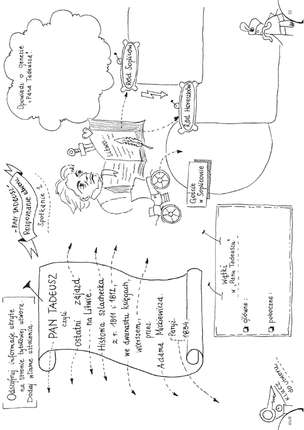 Odszyfruj informacje ukryte
na stronie tytułowej utworu.
Dodaj własne utrwalenia.
"PAN TADEUSZ"
Rysowane
Spotkanie 3.
Opowiedz o genezie
"Pana Tadeusza".
PAN TADEUSZ
czyli
ostatni zajazd
na Litwie.
Historia szlachecka
z r. 1811 i 1812,
we dwunastu księgach,
wierszem,
przez
Adama Mickiewicza
Paryż
1834
Ród Sopliców
Ród Horeszków
Goście
w Soplicowie
Wątki
w "Panu Tadeuszu"
główne:
poboczne:
KLUCZ